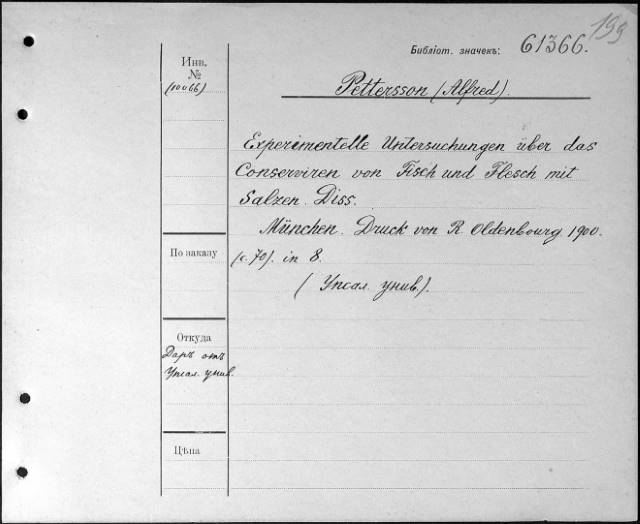 199
Библіот. значекъ: 61366.
Инв.
№
(10066)
Pettersson (Alfred).
Experimentelle Untersuchungen über das
Conserviren von Fisch und Flesch mit
Salzen. Diss.
München. Druck von R. Oldenbourg. 1900.
(с. 70). in 8.
(Упсал. унив.).
По заказу
Откуда
Даръ отъ
Упсал. унив.
Цѣна